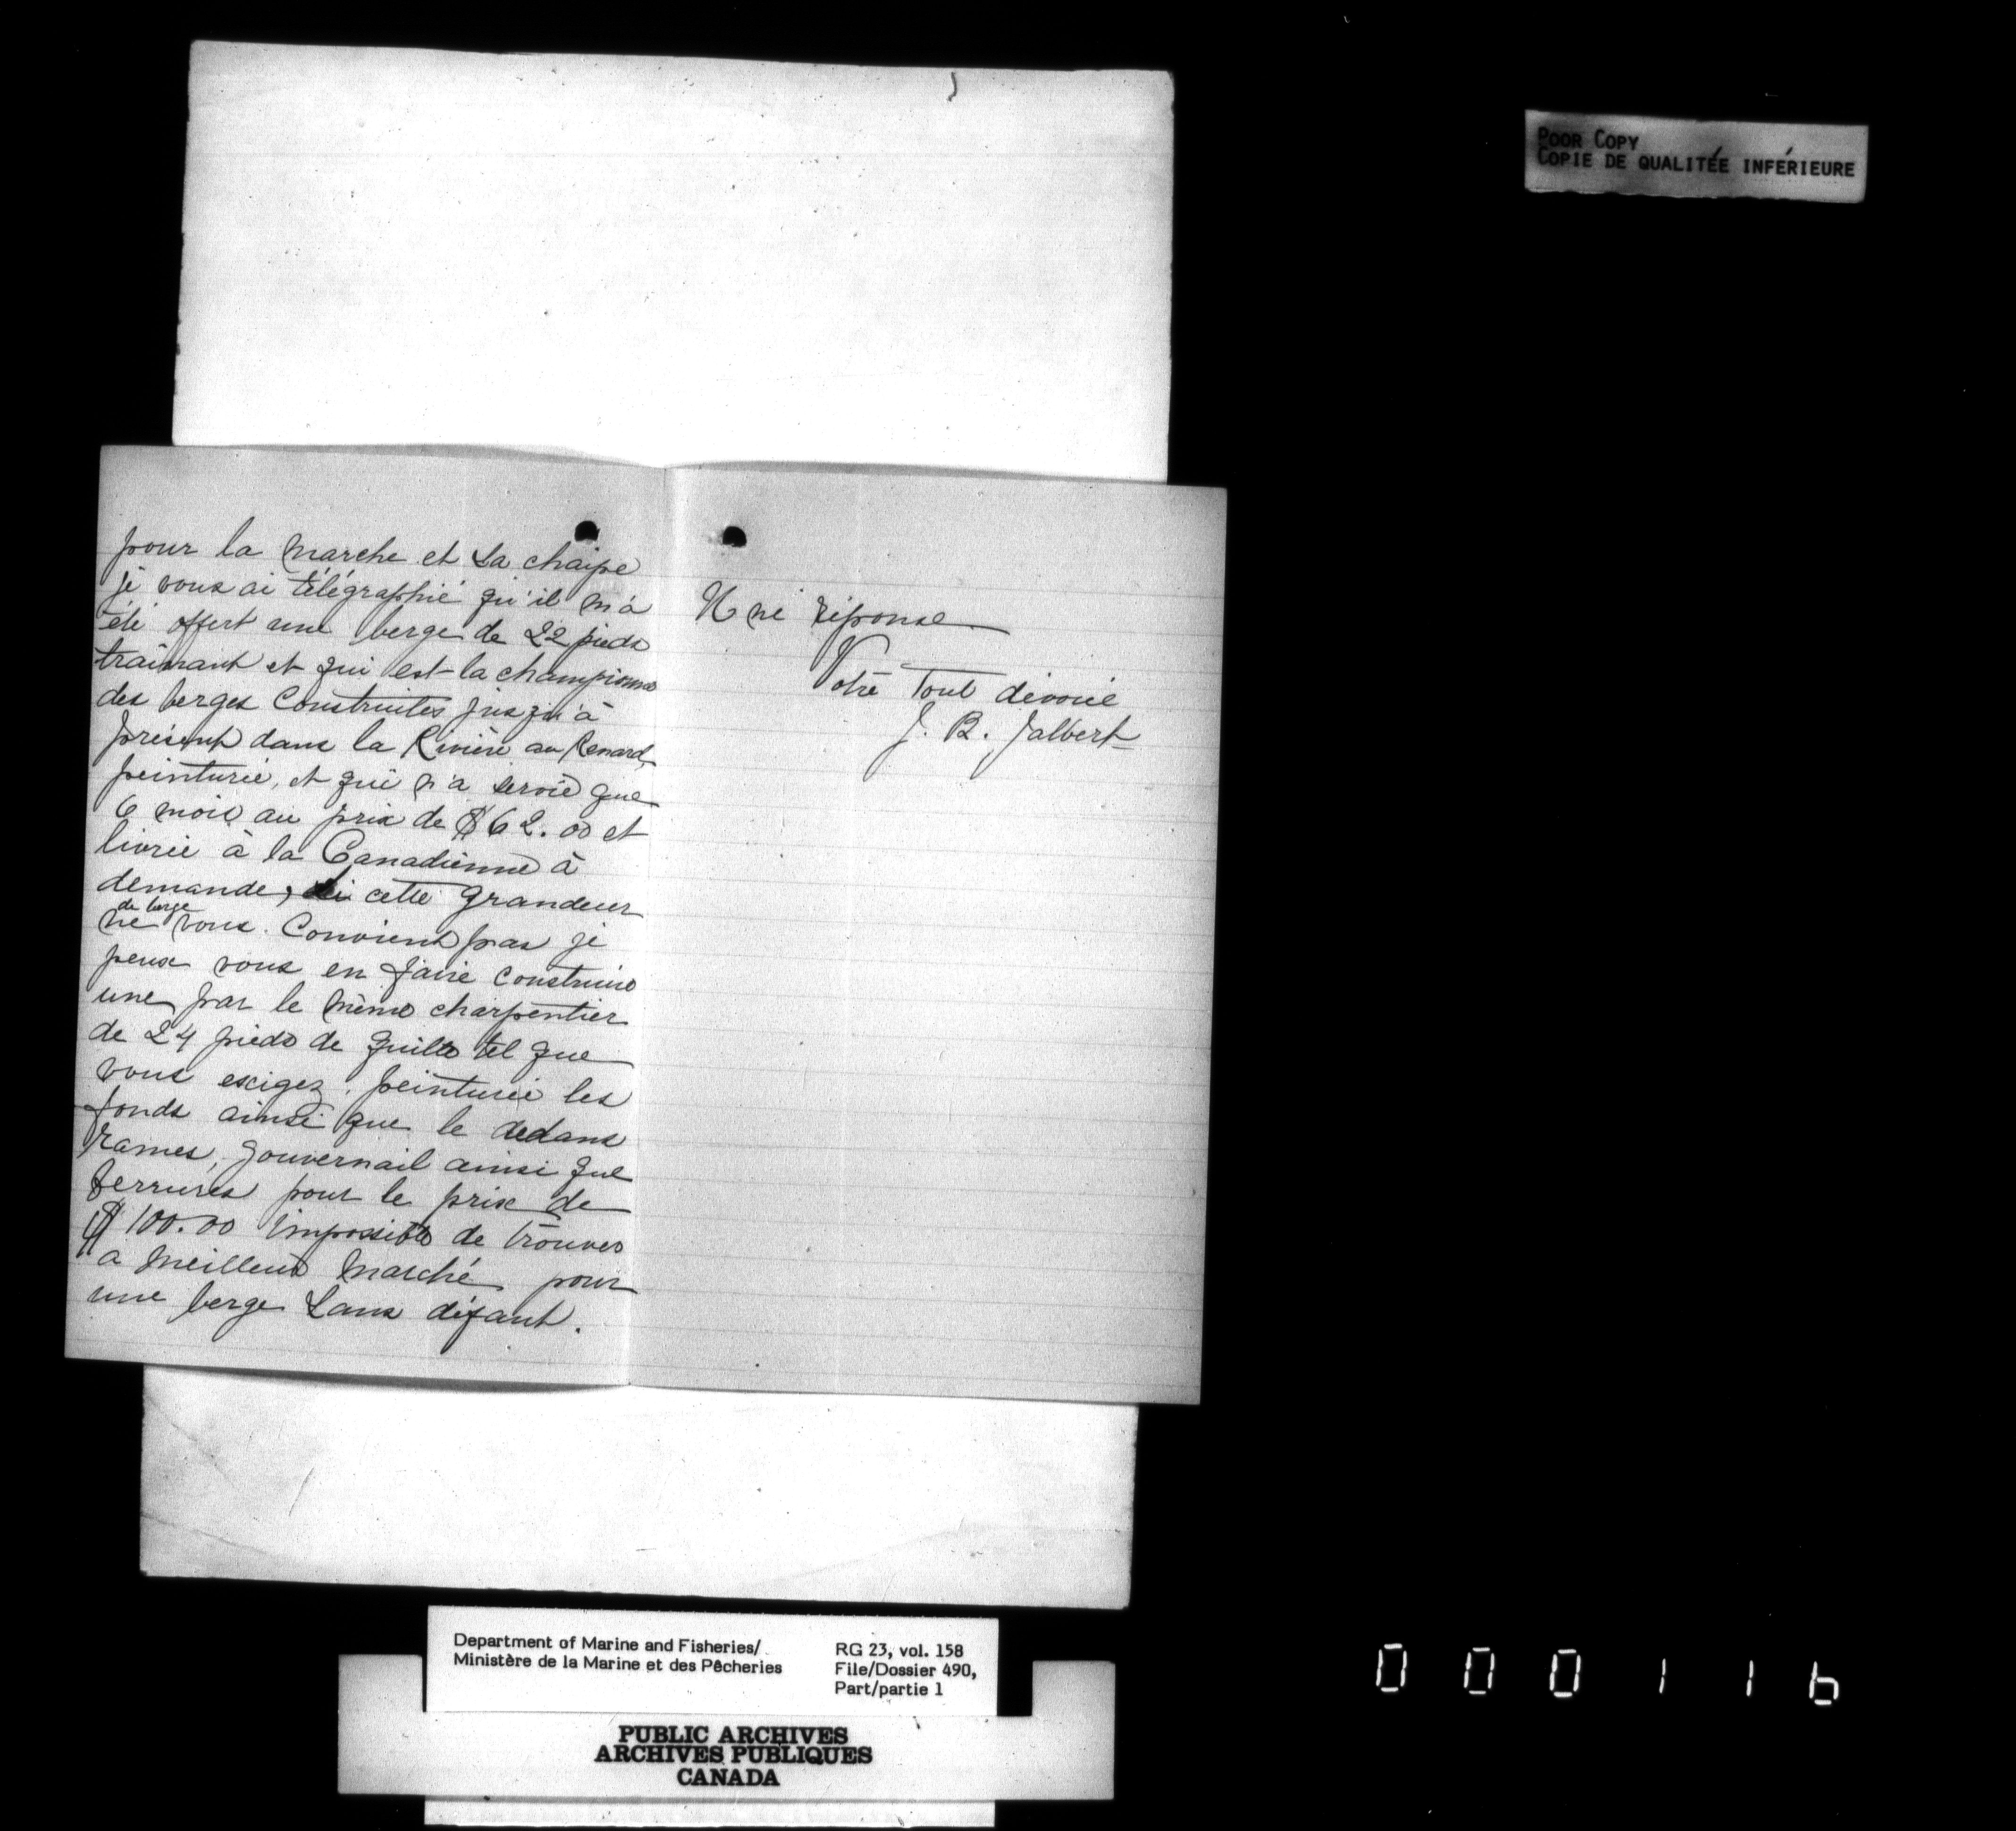 POOR COPY
COPIE DE QUALITÉE INFÉRIEURE
pour la marche et La chaipe
je vous ai télégraphié qu'il m'a
été offert une berge de 22 pieds
trainant et qui est la championne
des berges Construites jusqu'à
présent dans la Rivière au Renard,
peinturée, et qui n'a servie que
6 mois au prix de $62.00 et
livrée à la Canadienne à
demande, Si cette grandeur
de berge
ne vous Convient pas je
peux vous en faire construire
une par le même charpentier
de 24 pieds de quille tel que
vous exigez, peinturée les
fonds ainsi que le dedans
rames, gouvernail ainsi que
ferrures pour le prix de
$100.00 Impossible de trouver
a meilleur marché pour
une berge Sans défaut.
Une réponse
Votre Tout dévoué
J. B. Jalbert
Department of Marine and Fisheries/
Ministère de la Marine et des Pêcheries
RG 23, vol. 158
File/Dossier 490,
Part/partie 1
PUBLIC ARCHIVES
ARCHIVES PUBLIQUES
CANADA
000116